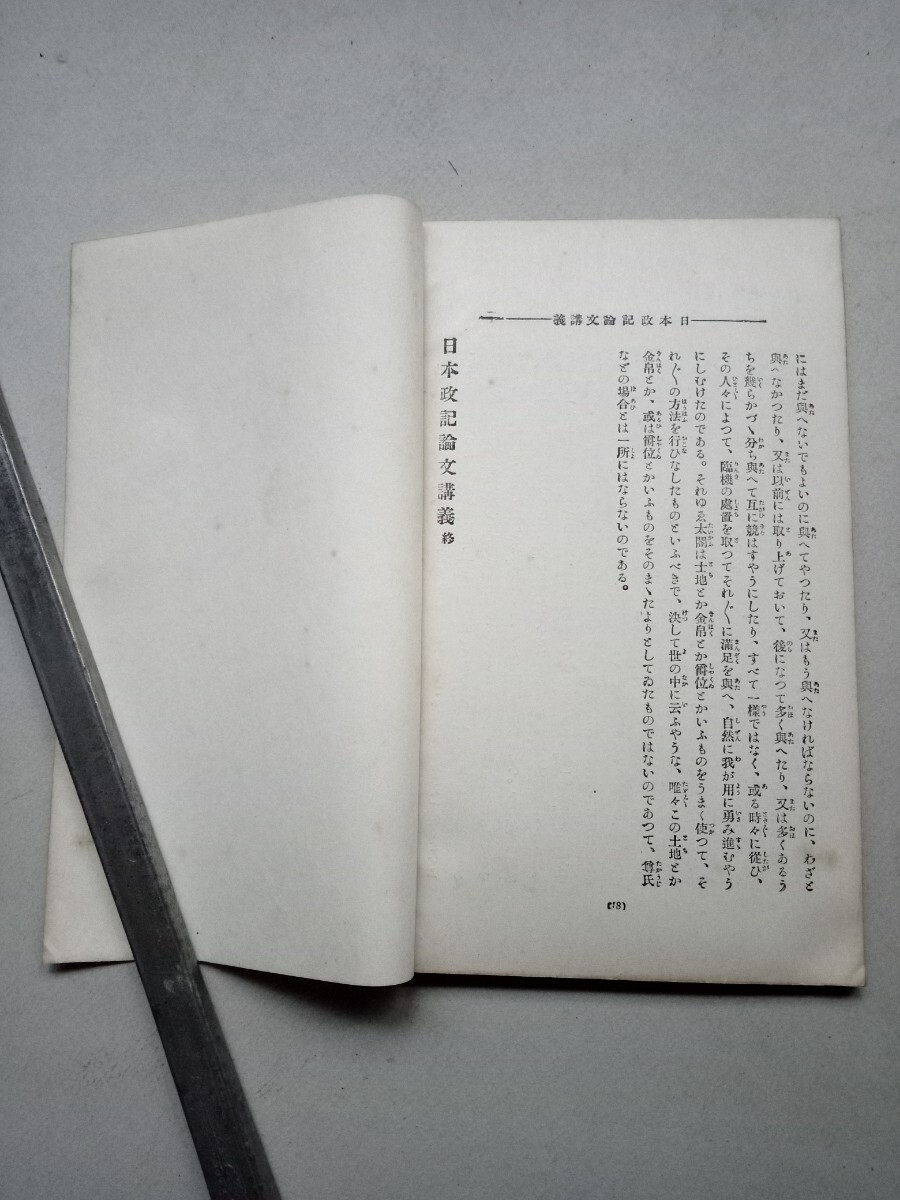 日本政記論文講義
にはまだ與へないでもよいのに與へてやつたり、又はもう與へなければならないのに、わざと
與へなかつたり、又は以前には取り上げておいて、後になつて多く與へたり、又は多くあるう
ちを幾らかづゝ分ち與へて互に競はすやうにしたり、すべて一樣ではなく、或る時々に從ひ、
その人々によつて、臨機の處置を取つてそれ〴〵に滿足を與へ、自然に我が用に勇み進むやう
にしむけたのである。それゆゑ太閤は土地とか金帛とか爵位とかいふものをうまく使つて、そ
れ〴〵の方法を行ひなしたものといふべきで、決して世の中に云ふやうな、唯々この土地とか
金帛とか、或は爵位とかいふものをそのまゝたよりとしてゐたものではないのであつて、尊氏
などの場合とは一所にはならないのである。
日本政記論文講義 終